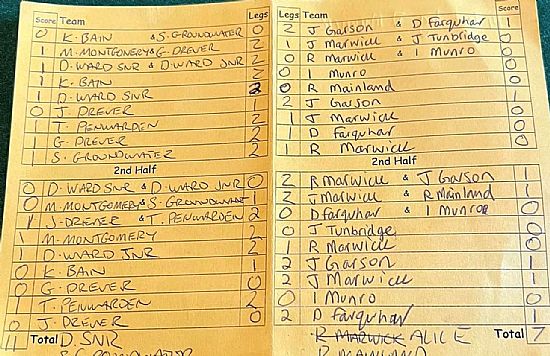 Score Team Legs
0 K. BAIN & S. GROUNDWATER 0
1 M. MONTGOMERY & G. DREVER 2
1 D. WARD SNR & D. WARD JNR 2
1 K. BAIN 2
1 D. WARD SNR 2
0 J. DREVER 1
1 T. PENWARDEN 2
1 G. DREVER 2
1 S. GROUNDWATER 2
2nd Half
0 D. WARD SNR & D. WARD JNR 0
0 M. MONTGOMERY & S. GROUNDWATER 1
1 J. DREVER & T. PENWARDEN 2
1 M. MONTGOMERY 2
1 D. WARD JNR 2
0 K. BAIN 1
0 G. DREVER 1
1 T. PENWARDEN 2
0 J. DREVER 0
11 Total D. SNR
GROUNDWATER
Legs Team Score
2 J Garson & D Farquhar 1
1 J Marwick & J Tunbridge 0
0 R Marwick & I Munro 0
0 I Munro 0
0 R Mainland 0
2 J Garson 1
1 J Marwick 0
1 D Farquhar 0
1 R Marwick 0
2nd Half
2 R Marwick & J Garson 1
2 J Marwick & R Mainland 1
0 D Farquhar & I Munro 0
0 J Tunbridge 0
1 R Marwick 0
2 J Garson 1
2 J Marwick 1
0 I Munro 0
2 D Farquhar 1
R MARWICK ALICE Total 7
R MAINLAND